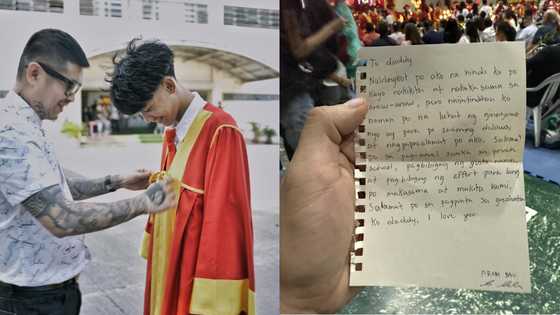 To daddy,
Nalulungkot po ako na hindi ko po
kayo nakikita at nakakasama sa
araw-araw, pero naiintindihan ko
naman po na lahat ng ginagawa
niyo ay para po sa aming dalawa,
at nagpapasalamat po ako. Salamat
po sa pagpapaaral sa private
school, pagbibigay ng gusto namin
at pagbibigay ng effort para lang
po makasama at makita kami,
Salamat po sa pagpunta sa graduation
ko daddy, I love you